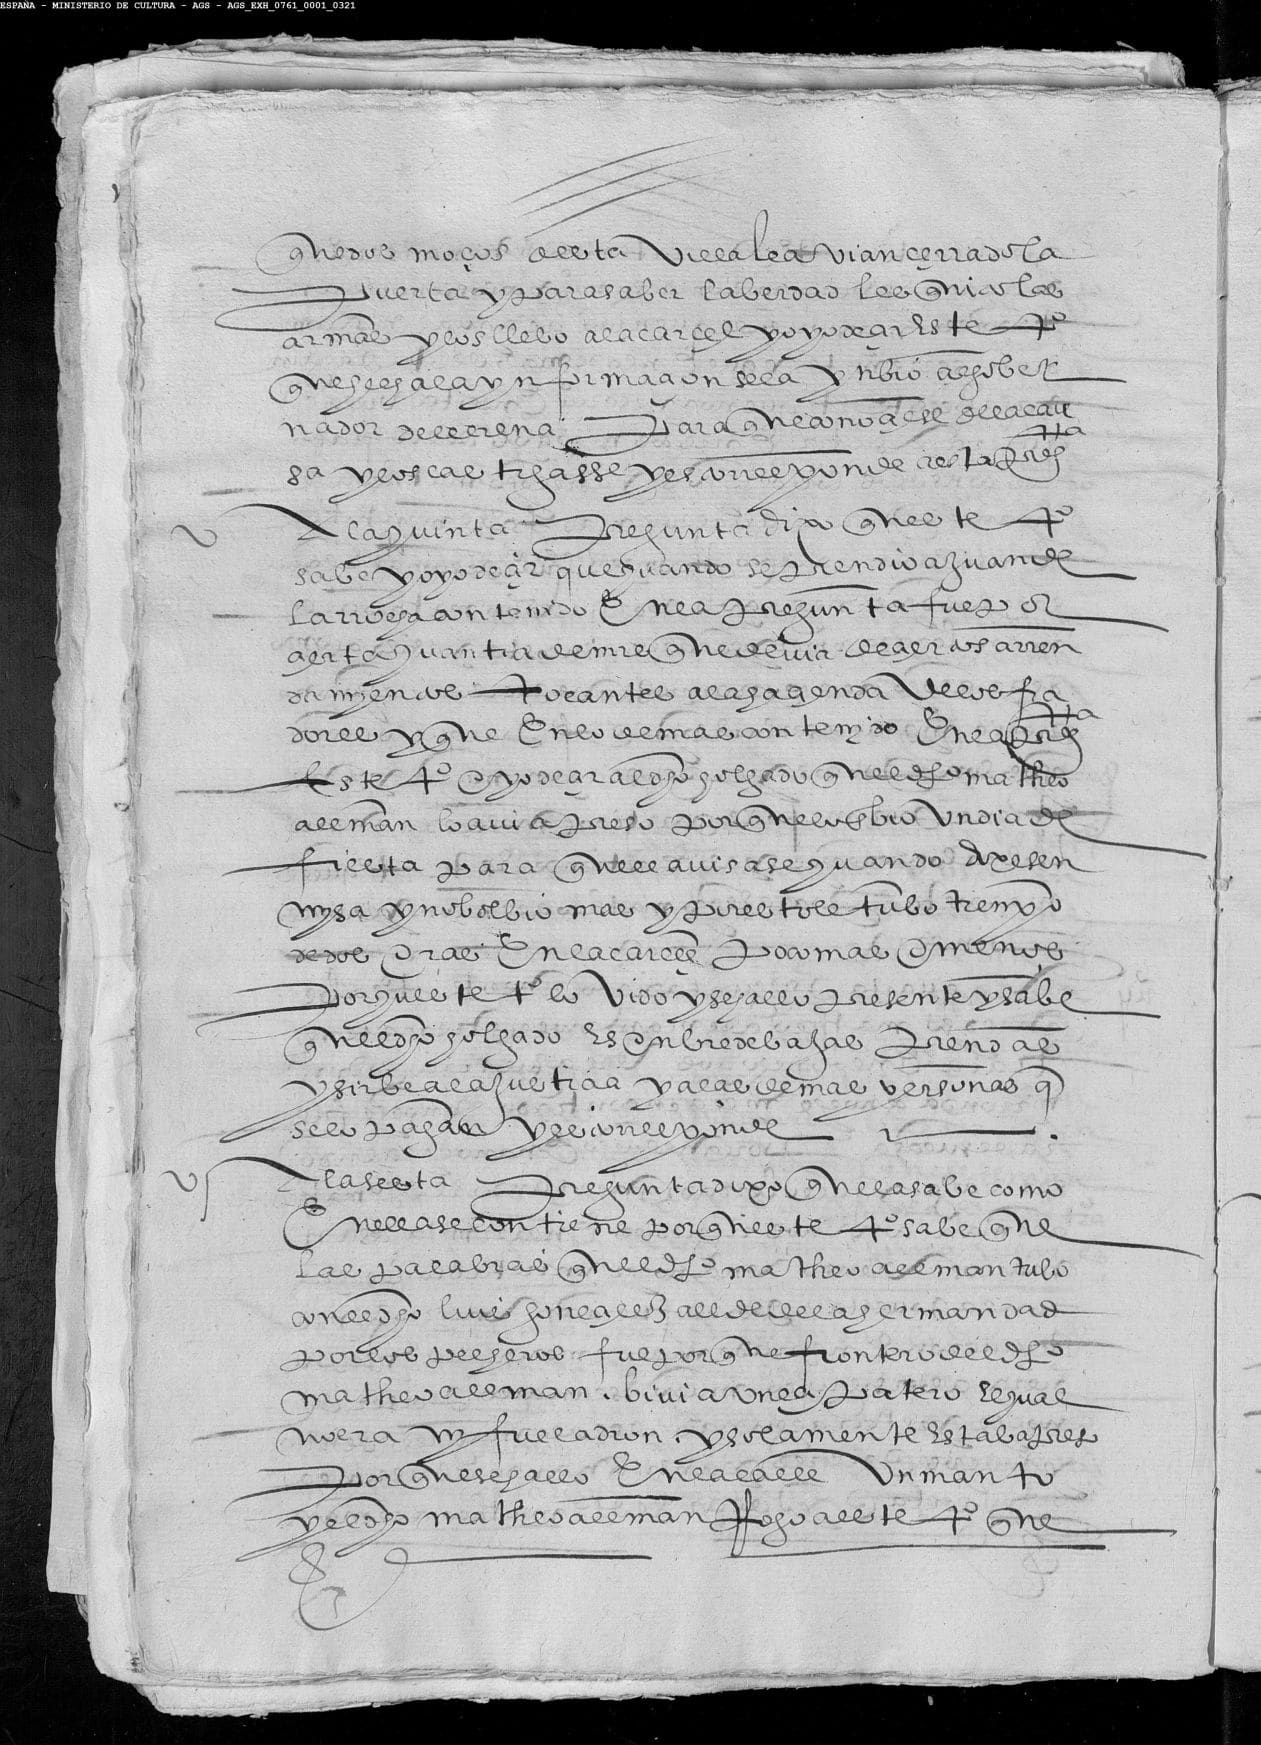 ESPAÑA - MINISTERIO DE CULTURA - AGS - AGS_EXH_0761_0001_0321
que dos moços desta villa le avian çerrado la
puerta y para saber la berdad les quito las
armas y los llebo a la carçel y oyo deçir este tº
que hecha la ynformaçion se la ynbio al gober
nador de llerena para que conoçiese de la cau
sa y los castigasse y esto rresponde a esta pregta
v A la quinta pregunta dixo que este tº
sabe y oyo deçir que quando se prendio a juan de
la rrosa contenido en la pregunta fue por
çierta quantia de mrs que devia de çiertos arren
damyentos tocantes a la haçienda de los fia
dores y que en lo demas contenydo en la pregta
este tº oyo deçir al dho holgado que el dho matheo
aleman lo avia preso porque lo enbio un dia de
fiesta para que le avisase quando dixesen
mysa y no bolbio mas y por esto le tubo tienpo
de dos oras en la carçel poco mas o menos
porque este tº lo vido y se hallo presente y sabe
que el dho holgado es onbre de baxas prendas
y sirbe a la justiçia y a las demas personas q
se lo pagan y esto rresponde
vj A la sesta pregunta dixo que la sabe como
en ella se contiene porque este tº sabe que
las palabras que el dho matheo aleman tubo
con el dho luis gonçalez alcalde de la hermandad
por los presos fue porque frontero del dho
matheo aleman bivia un çapatero el qual
no era ny fue ladron y solamente estaba preso
porque se hallo en la calle un manto
y el dho matheo aleman rrogo a este tº que